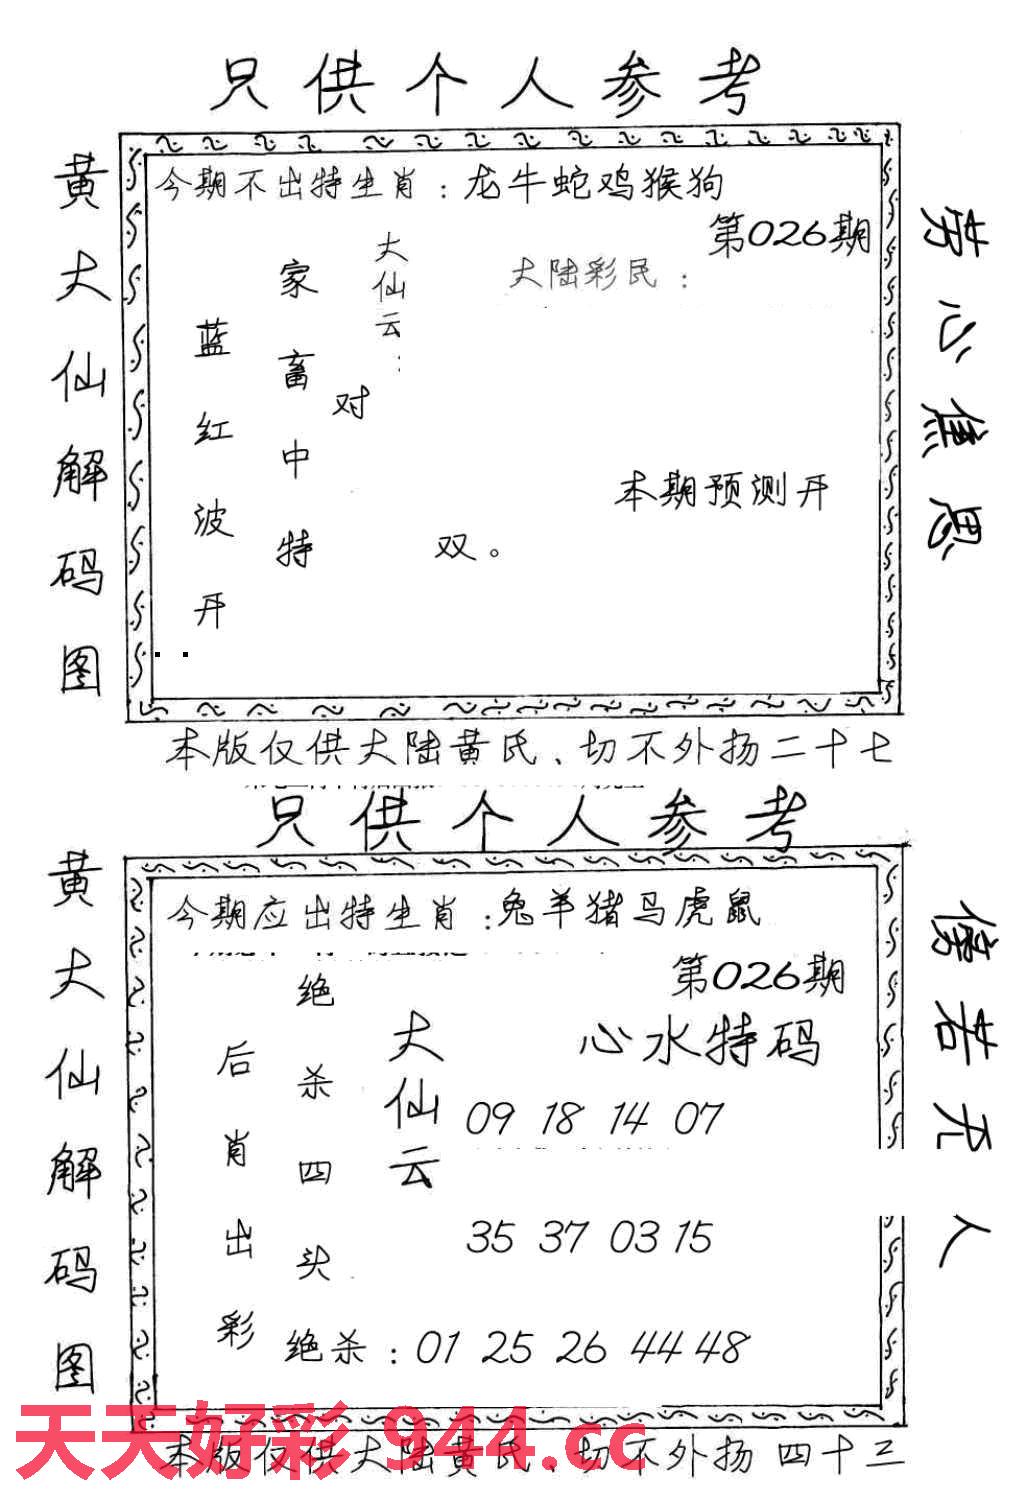 只供个人参考
黄大仙解码图
今期不出特生肖：龙牛蛇鸡猴狗
第026期
大陆彩民：
大仙云：
家畜中特
蓝红波开
对
双。
本期预测开
劳心焦思
本版仅供大陆黄氏、切不外扬二十七
只供个人参考
黄大仙解码图
今期应出特生肖：兔羊猪马虎鼠
第026期
心水特码
大仙云
绝杀四头
后肖出彩
09 18 14 07
35 37 03 15
绝杀：01 25 26 44 48
傍若无人
本版仅供大陆黄氏、切不外扬 四十三
天天好彩 944.cc